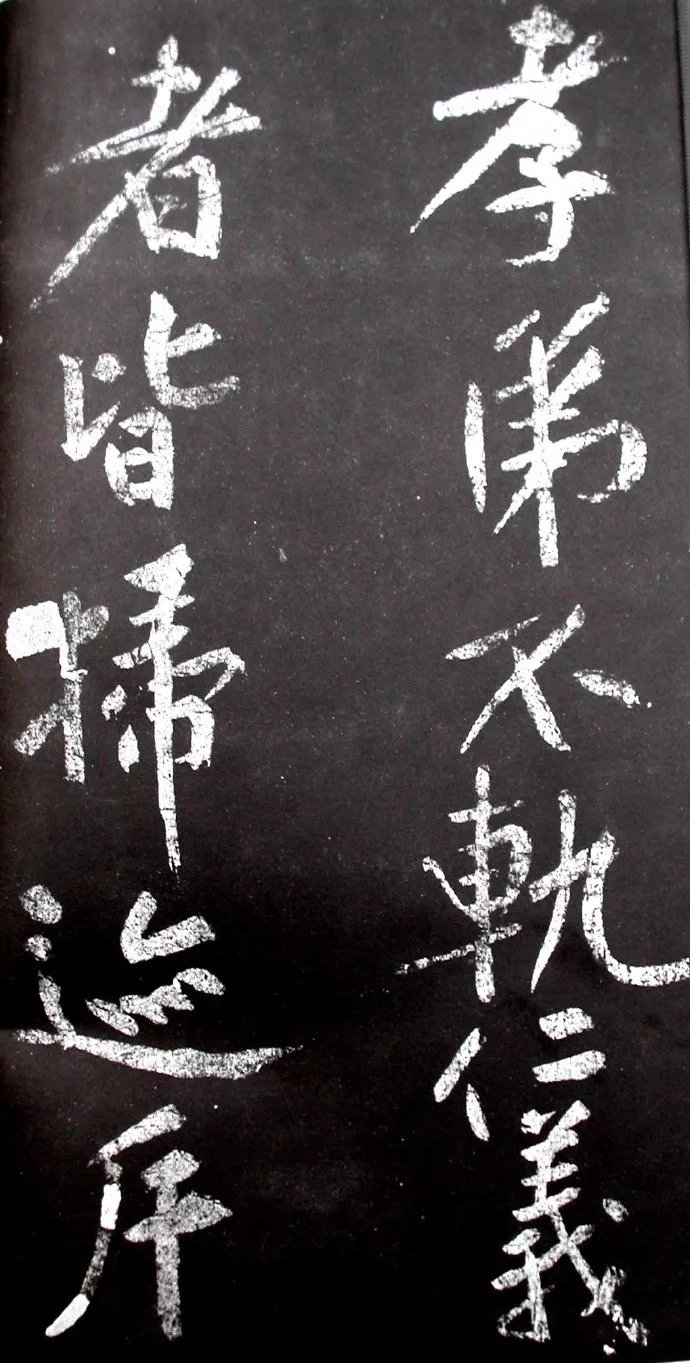 孝弟不軌仁義
者皆掃迹斥